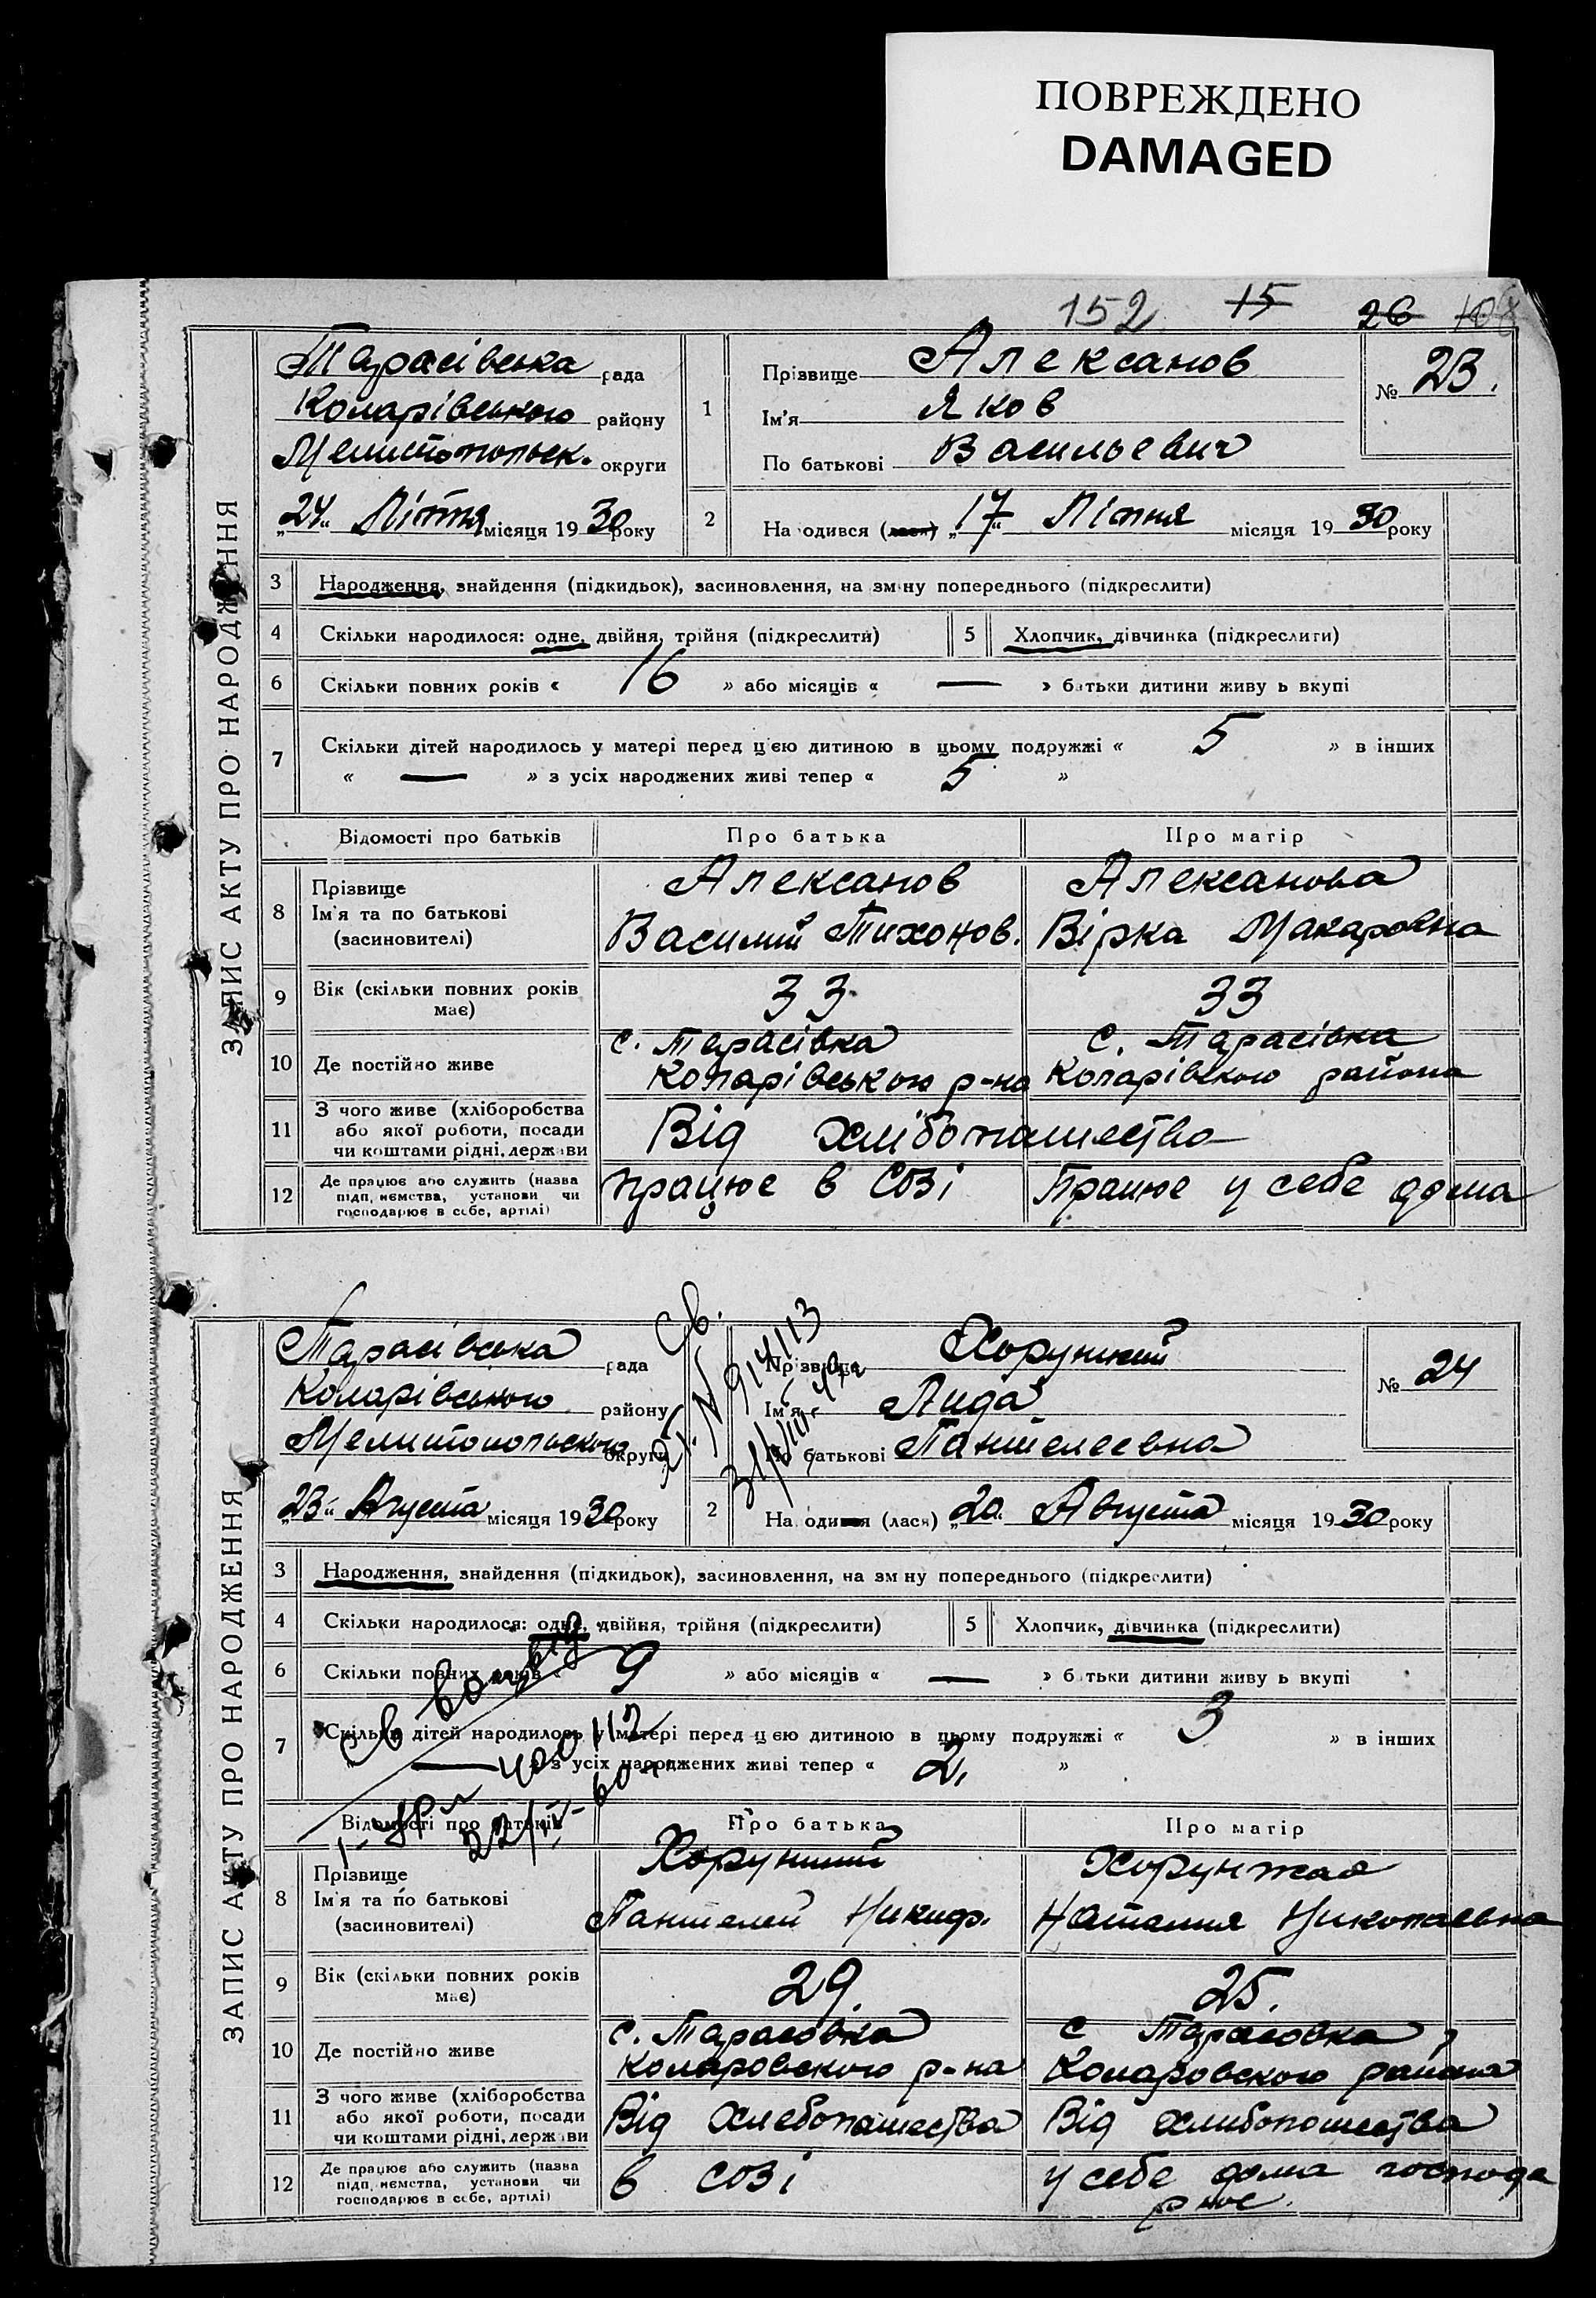 ПОВРЕЖДЕНО
DAMAGED
152 15 26
ЗАПИС АКТУ ПРО НАРОДЖЕННЯ
Тарасівська рада
Коларівського району
Мелитопольск. округи
„24“ Літня місяця 1930 року
1
Прізвище Алексанов
Ім'я Яков
По батькові Васильевич
№ 23.
2 На одився (лася) „17“ Літня місяця 1930 року
3 Народження, знайдення (підкидьок), засиновлення, на зм ну попереднього (підкреслити)
4 Скільки народилося: одне, двійня, трійня (підкреслити) 5 Хлопчик, дівчинка (підкреслити)
6 Скільки повних років « 16 » або місяців « — » батьки дитини живу ь вкупі
7 Скільки дітей народилось у матері перед цією дитиною в цьому подружжі « 5 » в інших
« — » з усіх народжених живі тепер « 5 »
Відомості про батьків Про батька Про матір
8 Прізвище
Ім'я та по батькові
(засиновителі)
Алексанов
Василий Тихонов.
Алексанова
Вірка Макаровна
9 Вік (скільки повних років має) 33 33
10 Де постійно живе
с. Тарасівка
Коларівського р-на
с. Тарасівка
Коларівского района
11 З чого живе (хліборобства
або якої роботи, посади
чи коштами рідні, держави
Від хлібопашества
12 Де працює або служить (назва
підп, иємства, установи чи
господарює в себе, артілі)
працює в СОЗі
Працює у себе дома
ЗАПИС АКТУ ПРО НАРОДЖЕННЯ
Тарасівська рада
Коларівського району
Мелитопольского округи
„23“ Августа місяця 1930 року
Св.
N 914113
Прізвище Хорунжий
Ім'я Лида
По батькові Пантелеевна
№ 24
2 На одився (лася) „20“ Августа місяця 1930 року
3 Народження, знайдення (підкидьок), засиновлення, на зм ну попереднього (підкреслити)
4 Скільки народилося: одне, двійня, трійня (підкреслити) 5 Хлопчик, дівчинка (підкреслити)
6 Скільки повних років « 9 » або місяців « — » б тьки дитини живу ь вкупі
7 Скільки дітей народилось у матері перед цією дитиною в цьому подружжі « 3 » в інших
« — » з усіх народжених живі тепер « 2, »
Відомості про батьків Про батька Про матір
8 Прізвище
Ім'я та по батькові
(засиновителі)
Хорунжий
Пантелей Никиф.
Хорунжая
Наталия Николаевна
9 Вік (скільки повних років має) 29. 25.
10 Де постійно живе
с. Тарасовка
Коларовского р-на
с Тарасовка,
Коларовского района
11 З чого живе (хліборобства
або якої роботи, посади
чи коштами рідні, держави
Від хлебопашества
Від хлибопашества
12 Де працює або служить (назва
підп, иємства, установи чи
господарює в себе, артілі)
в СОЗі
у себе дома господа
рює.